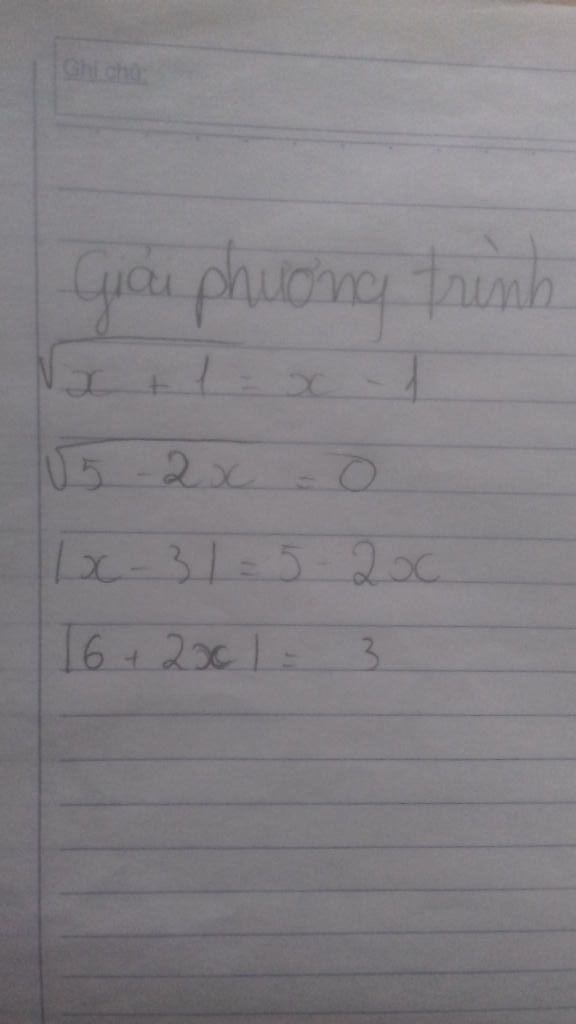 Ghi chú:
Giải phương trình
√x + 1 = x - 1
√5 - 2x = 0
|x - 3| = 5 - 2x
|6 + 2x| = 3